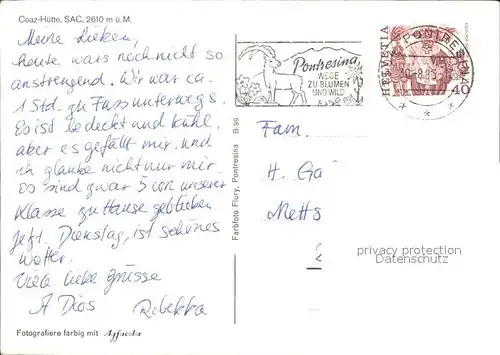 Coaz-Hütte, SAC, 2610 m ü. M.
Meine Lieben,
heute wars noch nicht so
anstrengend. Wir war ca.
1 Std. zu Fuss unterwegs.
Es ist bedeckt und kühl,
aber es gefällt mir, und
ich glaube nicht nur mir.
Es sind zwar 5 von unserer
Klasse zu Hause geblieben
Jetzt, Dienstag, ist schönes
Wetter.
Viele liebe Grüsse
A Dios Ribekka
Fotografiere farbig mit Agfacolor
Farbfoto Flury, Pontresina B 99
Pontresina
WEGE
ZU BLUMEN
UND WILD
PONTRESINA
HELVETIA
40
Fam.
H. Ga
Metts
privacy protection